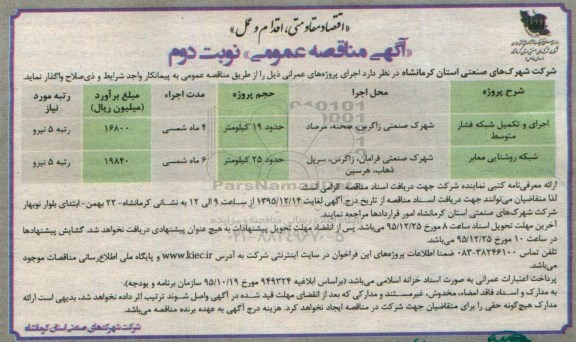 «اقتصاد مقاومتی، اقدام و عمل»
«آگهی مناقصه عمومی» نوبت دوم
شرکت شهرک‌های صنعتی استان کرمانشاه در نظر دارد اجرای پروژه‌های عمرانی ذیل را از طریق مناقصه عمومی به پیمانکار واجد شرایط و ذی‌صلاح واگذار نماید.
شرح پروژه محل اجرا حجم پروژه مدت اجراء مبلغ برآورد (میلیون ریال) رتبه مورد نیاز
اجرای و تکمیل شبکه فشار متوسط شهرک صنعتی زاگرس، صحنه، مرصاد حدود ۱۹ کیلومتر ۴ ماه شمسی ۱۶۸۰۰ رتبه ۵ نیرو
شبکه روشنایی معابر شهرک صنعتی فرامان، زاگرس، سرپل ذهاب، هرسین حدود ۲۵ کیلومتر ۶ ماه شمسی ۱۹۸۴۰ رتبه ۵ نیرو
ارائه معرفی‌نامه کتبی نماینده شرکت جهت دریافت اسناد مناقصه الزامی است.
لذا متقاضیان می‌توانند جهت دریافت اسناد مناقصه از تاریخ درج آگهی لغایت ۱۳۹۵/۱۲/۱۴ از ساعت ۹ الی ۱۲ به نشانی کرمانشاه- ۲۲ بهمن- ابتدای بلوار نوبهار
شرکت شهرک‌های صنعتی استان کرمانشاه امور قراردادها مراجعه نمایند.
آخرین مهلت تحویل اسناد ساعت ۸ مورخ ۹۵/۱۲/۲۵ می‌باشد. پس از انقضاء مهلت تحویل پیشنهادات به هیچ عنوان پیشنهادی دریافت نخواهد شد. گشایش پیشنهادها
در ساعت ۱۰ مورخ ۹۵/۱۲/۲۵ می‌باشد.
تلفن تماس ۳۸۲۴۶۱۰۰-۰۸۳ ضمنا اطلاعات پروژه‌های این فراخوان در سایت اینترنتی شرکت به آدرس www.kiec.ir و پایگاه ملی اطلاع‌رسانی مناقصات موجود
می‌باشد.
پرداخت اعتبارات عمرانی به صورت اسناد خزانه اسلامی می‌باشد (براساس ابلاغیه ۹۴۹۳۲۴ مورخ ۹۵/۱۰/۱۹ سازمان برنامه و بودجه).
به مدارک و اسناد فاقد امضاء، مخدوش، غیرمستند و مدارکی که بعد از انقضای مهلت قید شده در آگهی واصل شوند ترتیب اثر داده نخواهد شد، بدیهی است ارائه
مدارک هیچ‌گونه حقی را برای متقاضیان جهت شرکت در مناقصه ایجاد نخواهد کرد. هزینه درج آگهی به عهده برنده مناقصه می‌باشد.
شرکت شهرک‌های صنعتی استان کرمانشاه